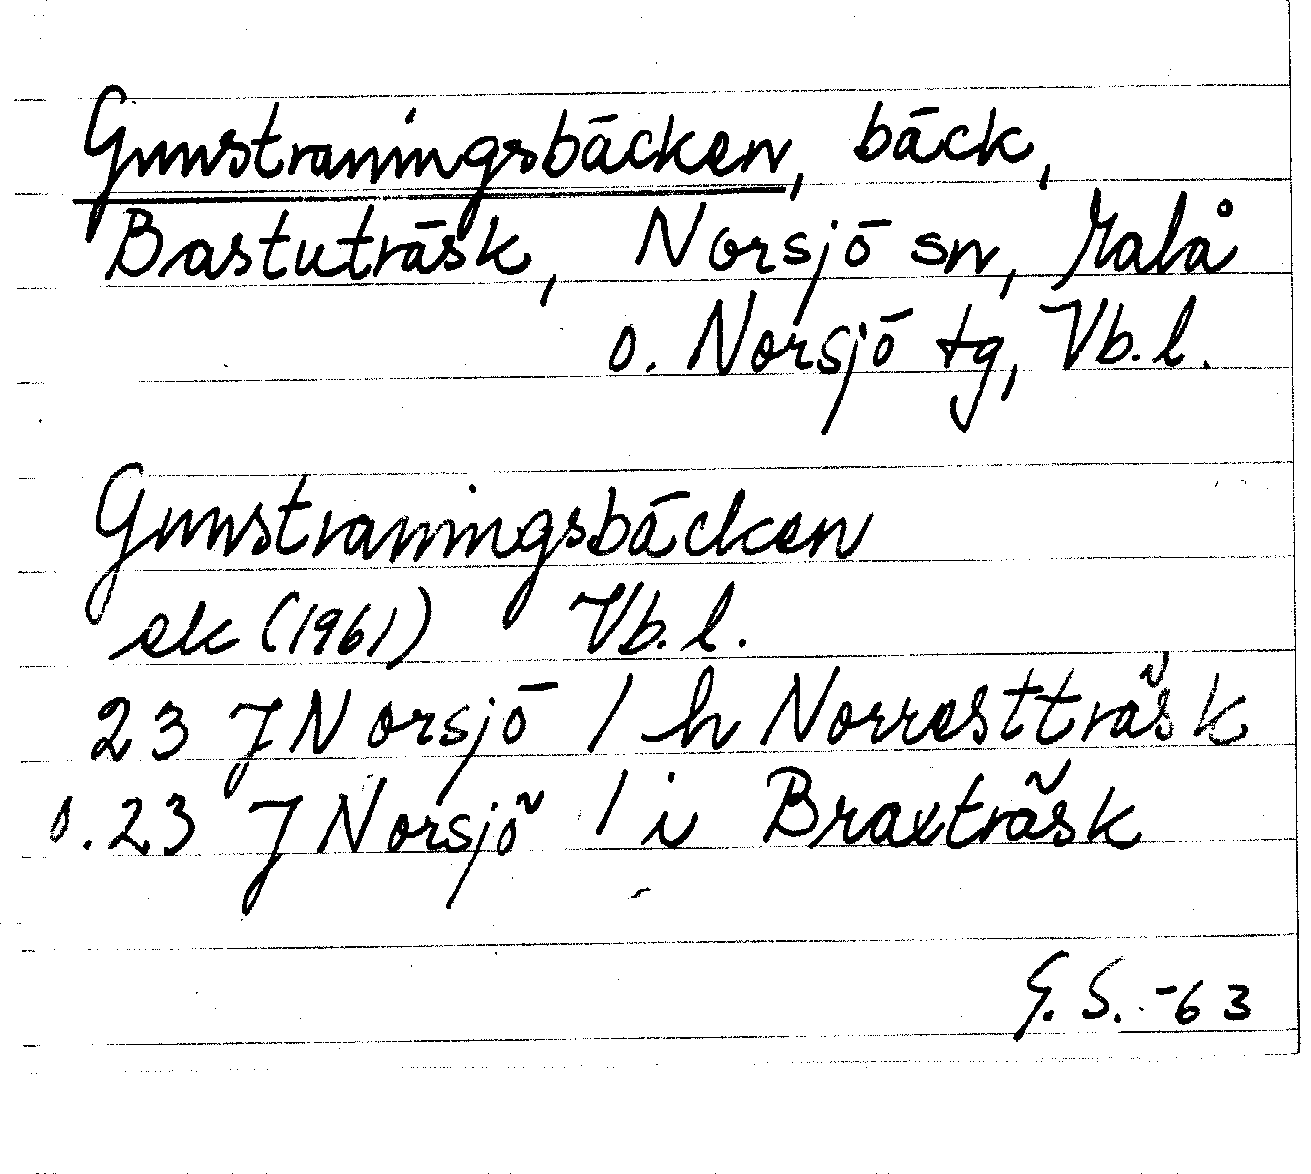 Gunstraningsbäcken, bäck,
Bastuträsk, Norsjö sn, Malå
o. Norsjö tg, Vb.l.
Gunstraningsbäcken
ek (1961) Vb.l.
23 J Norsjö / h Norrestträsk
o. 23 J Norsjö / i Braxträsk
G.S. -63